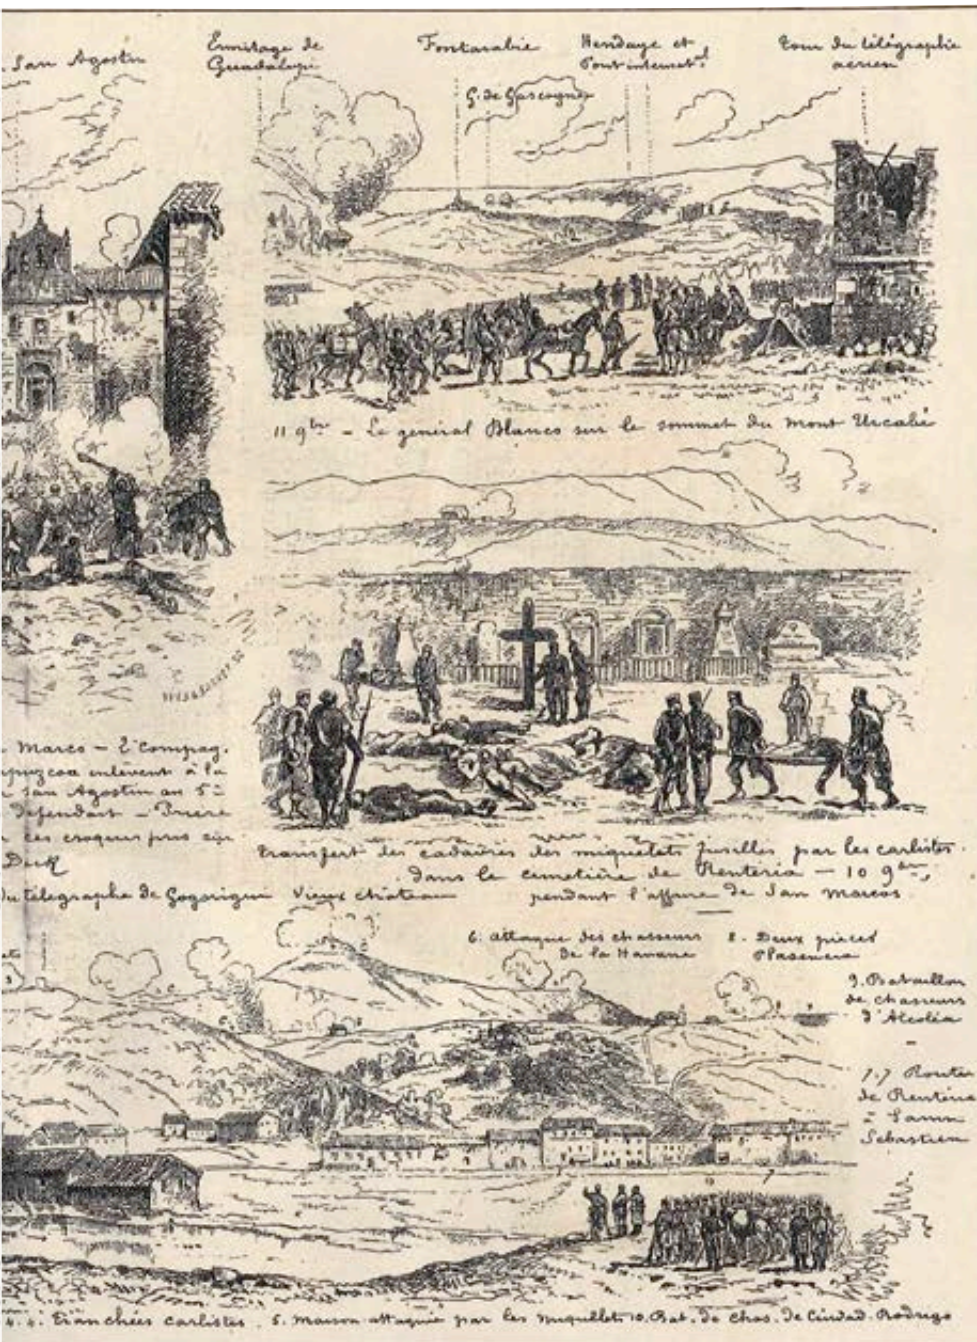 San Agostin
Ermitage de
Guadalupe
Fontarabie
G. de Gascogne
Hendaye et
Pont internat.l
tour du télégraphe
aerien
11 9bre - Le general Blanco sur le sommet du Mont Urcabé
Marco - 2e compag.
enlèvent à la
San Agostin au 5e
défendant - Priere
ces croquis pris sur
Dick
transfert des cadavres des miquelets fusillés par les carlistes
dans le cemetière de Renteria - 10 9bre,
pendant l'affaire de San Marcos
du télegraphe de Gogorigui
Vieux château
6. Attaque des chasseurs
de la Havane
8. Deux pièces
Plasencia
9. Bataillon
de chasseurs
d'Alcoléa
7.7 Route
de Renteria
à Saint
Sebastien
4.4. tranchées carlistes. 5. maison attaquée par les miquellets 10. Bat. de chas. de Ciudad. Rodrigo